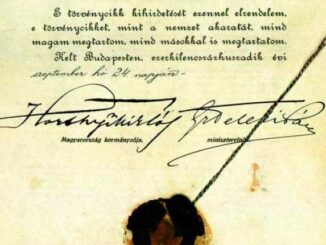 E törvénycikk kihirdetését ezennel elrendelem,
e törvénycikket, mint a nemzet akaratát, mind
magam megtartom, mind másokkal is megtartatom.
Kelt Budapesten, ezerkilencszázhuszadik évi
szeptember hó 24. napján.
Magyarország kormányzója. miniszterelnök.